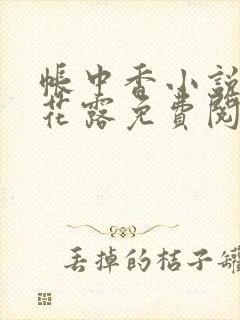 帳中香小說
花露免費閱
丟掉的桔子罐